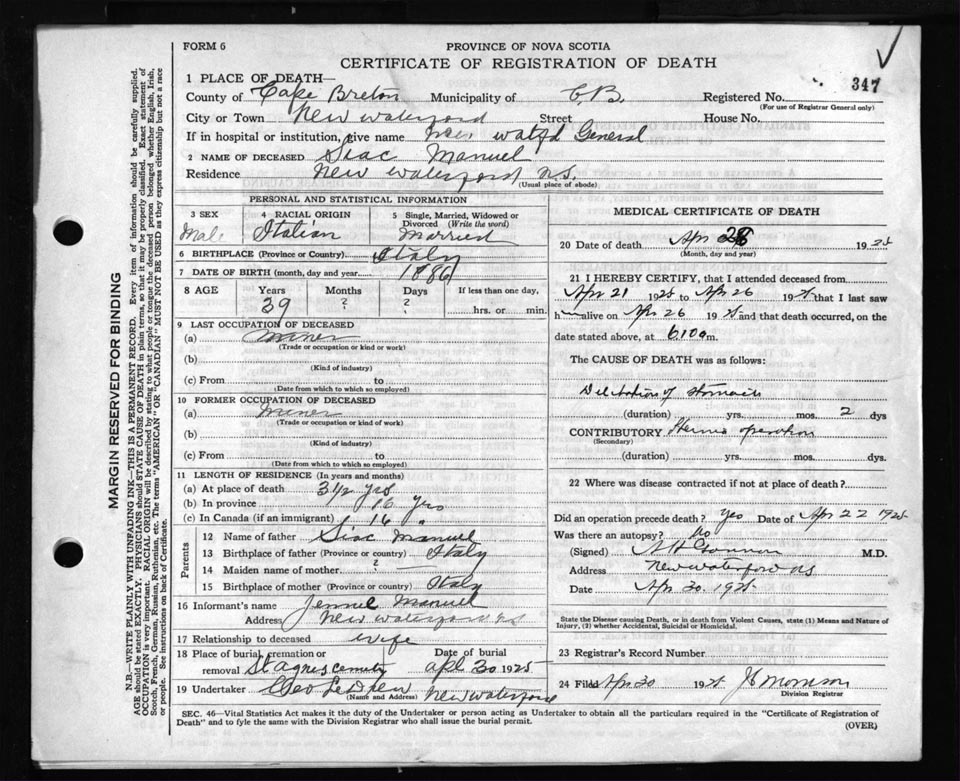 FORM 6
PROVINCE OF NOVA SCOTIA
CERTIFICATE OF REGISTRATION OF DEATH
347
1 PLACE OF DEATH—
County of Cape Breton Municipality of C.B. Registered No.
(For use of Registrar General only)
City or Town New Waterford Street House No.
If in hospital or institution, give name General
2 NAME OF DECEASED Siac Manuel
Residence New Waterford N.S.
(Usual place of abode)
PERSONAL AND STATISTICAL INFORMATION
3 SEX 4 RACIAL ORIGIN 5 Single, Married, Widowed or Divorced (Write the word)
Male Italian Married
6 BIRTHPLACE (Province or Country) Italy
7 DATE OF BIRTH (month, day and year) 1886
8 AGE Years Months Days If less than one day,
39 ? ? hrs. or min.
9 LAST OCCUPATION OF DECEASED
(a) miner
(Trade or occupation or kind or work)
(b)
(Kind of industry)
(c) From to
(Date from which to which so employed)
10 FORMER OCCUPATION OF DECEASED
(a) miner
(Trade or occupation or kind of work)
(b)
(Kind of industry)
(c) From to
(Date from which to which so employed)
11 LENGTH OF RESIDENCE (In years and months)
(a) At place of death 3 1/2 yrs
(b) In province 16 yrs
(c) In Canada (if an immigrant) 16 "
Parents
12 Name of father Siac Manuel
13 Birthplace of father (Province or country) Italy
14 Maiden name of mother ?
15 Birthplace of mother (Province or country) Italy
16 Informant's name Manuel
Address New Waterford N.S
17 Relationship to deceased wife
18 Place of burial, cremation or Date of burial
removal St Agnes cemetery Apl 30 1925
19 Undertaker New Waterford
(Name and Address)
MEDICAL CERTIFICATE OF DEATH
20 Date of death Apr 1925
(Month, day and year)
21 I HEREBY CERTIFY, that I attended deceased from
Apr 21 1925 to Apr 26 1925 that I last saw
him alive on Apr 26 1925 and that death occurred, on the
date stated above, at 6.10 a m.
The CAUSE OF DEATH was as follows:
of stomach
(duration) yrs. mos. 2 dys
CONTRIBUTORY Hernia operation
(Secondary)
(duration) yrs. mos. dys.
22 Where was disease contracted if not at place of death?
Did an operation precede death? Yes Date of Apr 22 1925
Was there an autopsy? No
(Signed) M.D.
Address New Waterford NS
Date Apr 30. 1925
State the Disease causing Death, or in death from Violent Causes, state (1) Means and Nature of Injury, (2) whether Accidental, Suicidal or Homicidal.
23 Registrar's Record Number
24 Filed Apr 30 1925
Division Registrar
SEC. 46—Vital Statistics Act makes it the duty of the Undertaker or person acting as Undertaker to obtain all the particulars required in the "Certificate of Registration of
Death" and to fyle the same with the Division Registrar who shall issue the burial permit.
(OVER)
MARGIN RESERVED FOR BINDING
N.B.—WRITE PLAINLY WITH UNFADING INK.—THIS IS A PERMANENT RECORD. Every item of information should be carefully supplied.
AGE should be stated EXACTLY. PHYSICIANS should STATE CAUSE OF DEATH in plain terms, so that it may be properly classified. Exact statement of
OCCUPATION is very important. RACIAL ORIGIN will be described by stating to what people or tongue the deceased person belonged whether English, Irish,
Scotch, French, German, Russian, Ruthenian, etc. The terms "AMERICAN" OR "CANADIAN" MUST NOT BE USED as they express citizenship but not a race
or people. See instructions on back of Certificate.